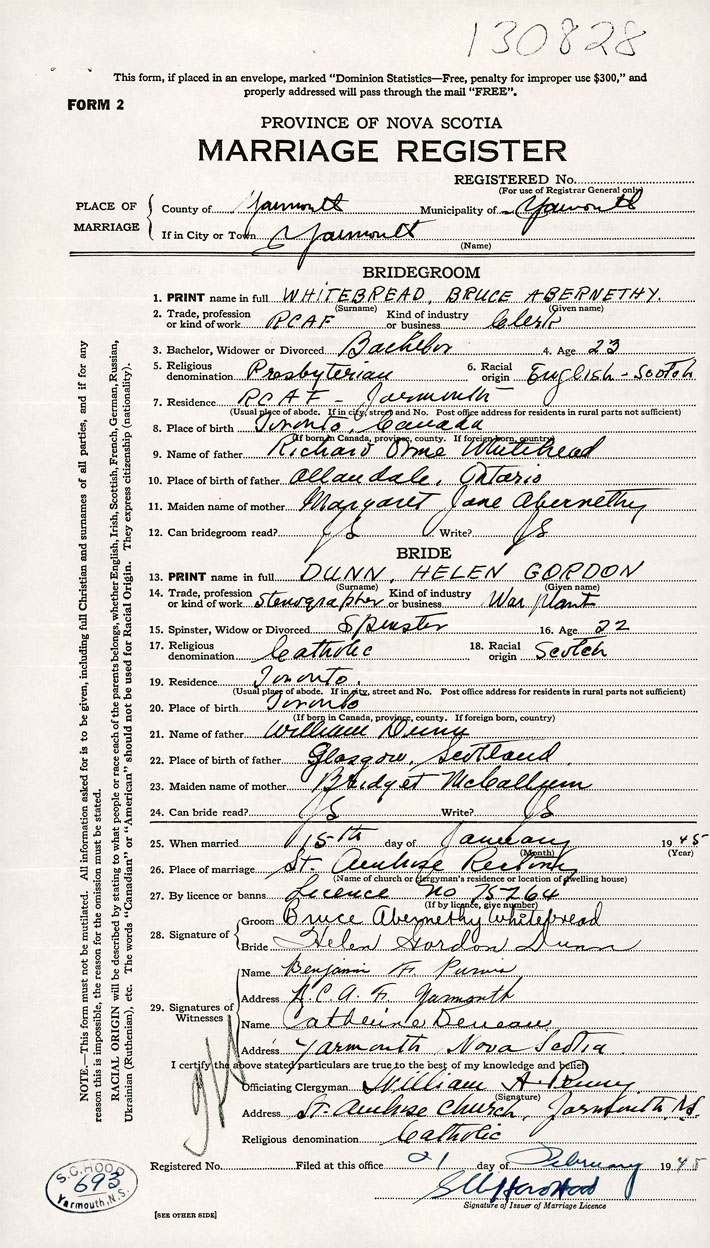 130828
This form, if placed in an envelope, marked "Dominion Statistics—Free, penalty for improper use $300," and
properly addressed will pass through the mail "FREE".
FORM 2
PROVINCE OF NOVA SCOTIA
MARRIAGE REGISTER
REGISTERED No.
(For use of Registrar General only)
PLACE OF MARRIAGE
County of Yarmouth Municipality of Yarmouth
If in City or Town Yarmouth
(Name)
BRIDEGROOM
1. PRINT name in full WHITEBREAD, BRUCE ABERNETHY.
(Surname) (Given name)
2. Trade, profession or kind of work RCAF Kind of industry or business Clerk
3. Bachelor, Widower or Divorced Bachelor 4. Age 23
5. Religious denomination Presbyterian 6. Racial origin English - Scotch
7. Residence RCAF - Yarmouth
(Usual place of abode. If in city, street and No. Post office address for residents in rural parts not sufficient)
8. Place of birth Toronto, Canada
(If born in Canada, province, county. If foreign born, country)
9. Name of father Richard Orme Whitehead
10. Place of birth of father Allandale, Ontario
11. Maiden name of mother Margaret Jane Abernethy
12. Can bridegroom read? Write?
BRIDE
13. PRINT name in full DUNN, HELEN GORDON
(Surname) (Given name)
14. Trade, profession or kind of work Stenographer Kind of industry or business War plant
15. Spinster, Widow or Divorced Spinster 16. Age 22
17. Religious denomination Catholic 18. Racial origin Scotch
19. Residence Toronto.
(Usual place of abode. If in city, street and No. Post office address for residents in rural parts not sufficient)
20. Place of birth Toronto
(If born in Canada, province, county. If foreign born, country)
21. Name of father William Dunn
22. Place of birth of father Glasgow, Scotland.
23. Maiden name of mother Bridget McCallum
24. Can bride read? Write?
25. When married 15th day of January 1945
(Month) (Year)
26. Place of marriage St. Ambrose
(Name of church or clergyman's residence or location of dwelling house)
27. By licence or banns Licence No 75264
(If by licence, give number)
28. Signature of
Groom Bruce Abernethy Whitebread
Bride Helen Gordon Dunn
29. Signatures of Witnesses
Name Benjamin F. Purvis
Address R.C.A.F. Yarmouth
Name Catherine Deveau
Address Yarmouth, Nova Scotia.
I certify the above stated particulars are true to the best of my knowledge and belief.
Officiating Clergyman William A. Penny
(Signature)
Address St. Ambrose Church, Yarmouth, N.S.
Religious denomination Catholic
Registered No. Filed at this office 21 day of February 1945
Signature of Issuer of Marriage Licence
[SEE OTHER SIDE]
S. C. HOOD
693
Yarmouth, N.S.
NOTE.—This form must not be mutilated. All information asked for is to be given, including full Christian and surnames of all parties, and if for any
reason this is impossible, the reason for the omission must be stated.
RACIAL ORIGIN will be described by stating to what people or race each of the parents belongs, whether English, Irish, Scottish, French, German, Russian,
Ukrainian (Ruthenian), etc. The words "Canadian" or "American" should not be used for Racial Origin. They express citizenship (nationality).